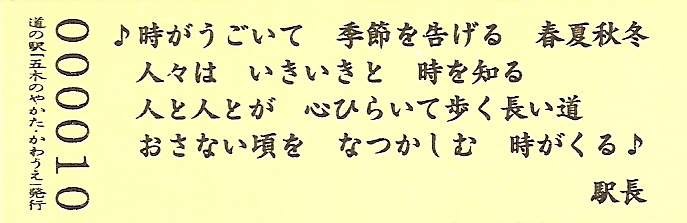 ♪時がうごいて　季節を告げる　春夏秋冬
人々は　いきいきと　時を知る
人と人とが　心ひらいて歩く長い道
おさない頃を　なつかしむ　時がくる♪
駅長
000010
道の駅「五木のやかた・かわうえ」発行